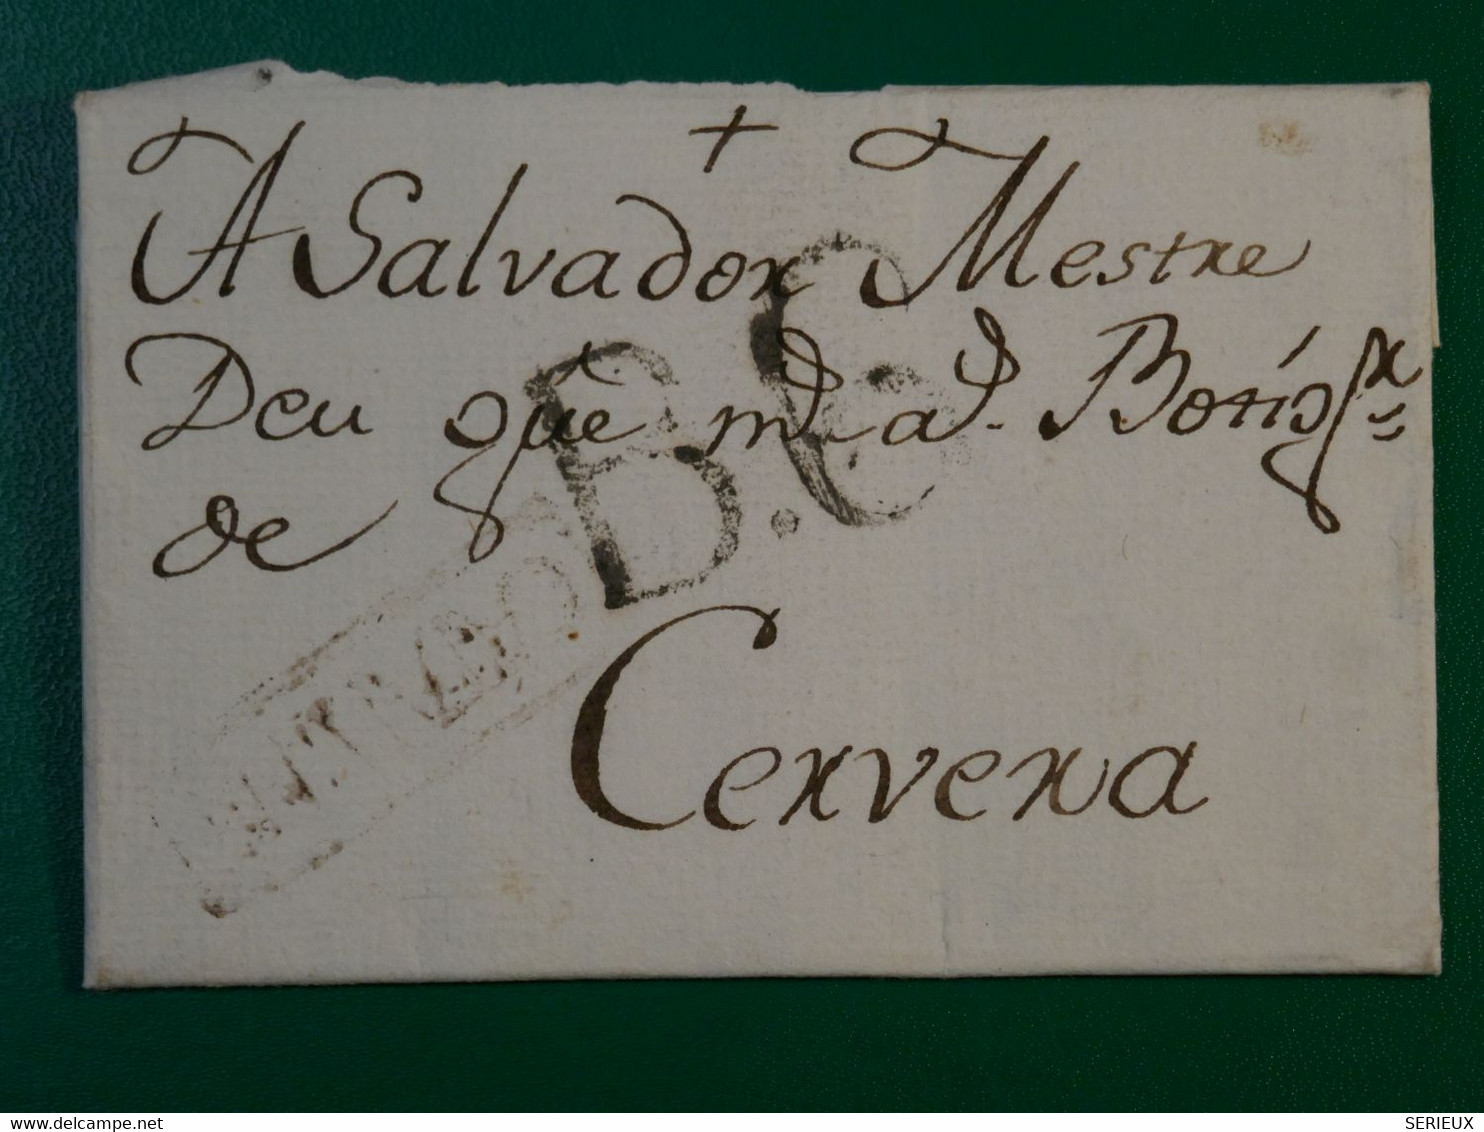 +
A Salvador Mestre
Deu que m.a. a.
de
Cervera
B.C
delcampe.net
SERIEUX